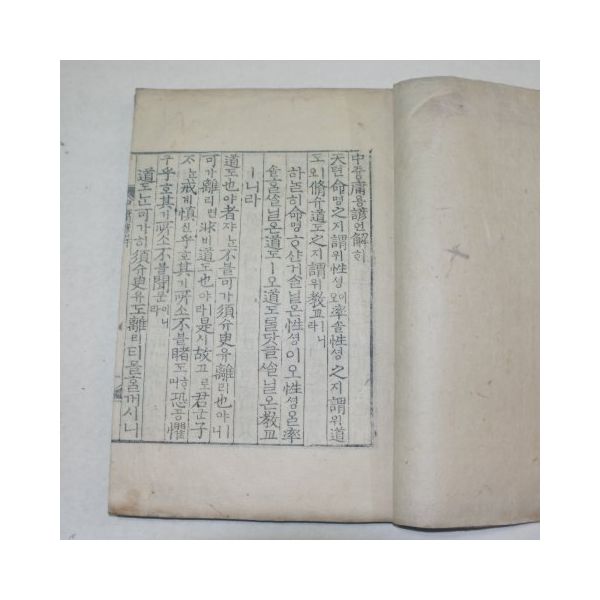 中듕庸용諺언解ᄒᆡ
天텬命명之지謂위性셩이오率솔性셩之지謂위道
도ㅣ오脩슈道도之지謂위敎교ㅣ니라
하ᄂᆞᆯ히命명ᄒᆞ샨거ᄉᆞᆯ닐온性셩이오性셩을率
솔홈을닐온道도ㅣ오道도ᄅᆞᆯ닷ᄀᆞᆯᄉᆞᆯ닐온敎교
ㅣ니라
道도也야者쟈ᄂᆞᆫ不블可가須슈臾유離리也야ㅣ니
可가離리면非비道도也야ㅣ라是시故고로君군子ᄌᆞ
ᄂᆞᆫ戒계愼신乎호其기所소不블睹도ᄒᆞ며恐공懼
구乎호其기所소不블聞문이니라
道도ᄂᆞᆫ可가히須슈臾유도離리티몯ᄒᆞᆯ꺼시니